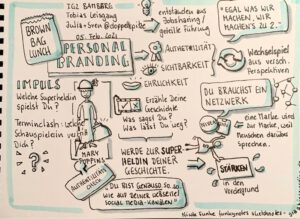 TGZ BAMBERG
Tobias Leisgang
05. Feb. 2021
BROWN
BAG
LUNCH
PERSONAL
BRANDING
entstanden aus
Jobsharing/
geteilte Führung
"EGAL WAS WIR
MACHEN, WIR
MACHEN'S ZU 2..."
AUTHENTIZITÄT
SICHTBARKEIT
Wechselspiel
aus versch.
Perspektiven
IMPULS
Welche Superheldin
spielst Du?
EHRLICHKEIT
Erzähle Deine
Geschichte.
Was sagst Du?
Was lässt Du weg?
DU BRAUCHST EIN
NETZWERK
Schauspielerin
Dich?
MARY
POPPINS
WERDE ZUR SUPER
HELDIN DEINER
GESCHICHTE.
eine Marke wird
zur Marke, weil
Menschen darüber
sprechen.
STÄRKEN
in den
Vordergrund
AUTHENTIZITÄTS
CHECK
"DU BIST GENAUSO SO, SO
WIE AUF DEINEN
SOCIAL MEDIA-KANÄLEN"